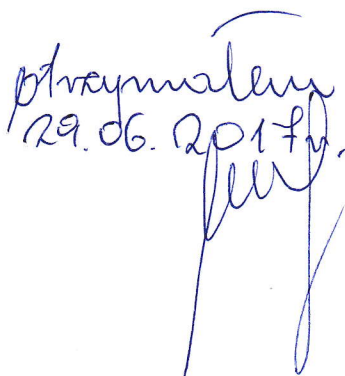 otrzymałem
29.06.2017r.